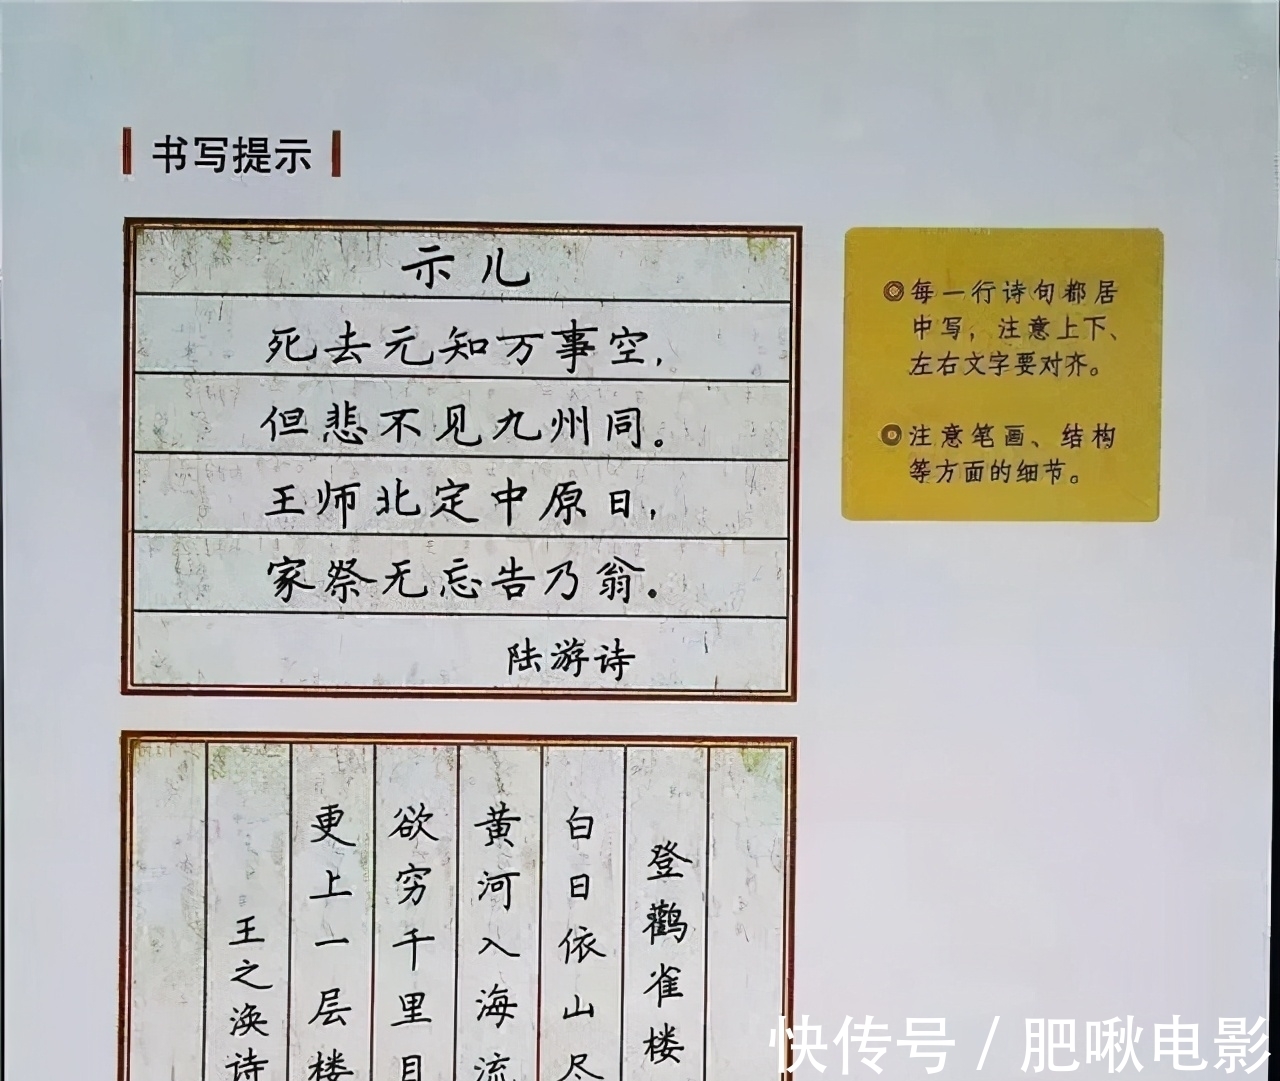 书写提示
示儿
死去元知万事空，
但悲不见九州同。
王师北定中原日，
家祭无忘告乃翁。
陆游诗
每一行诗句都居
中写，注意上下、
左右文字要对齐。
注意笔画、结构
等方面的细节。
登鹳雀楼
白日依山尽
黄河入海流
欲穷千里目
更上一层楼
王之涣诗
快传号/肥啾电影